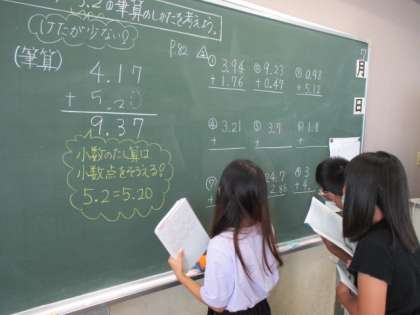 5.2の筆算のしかたを考えよう。
1けたが少ない?
(筆算)
4.17
+ 5.20
9.37
小数のたし算は
小数点をそろえる?
5.2=5.20
P.82
① 3.94
+ 1.76
② 9.23
+ 0.47
③ 0.98
+ 5.12
④ 3.21
+
⑤ 3.7
+
⑥ 1.8
+
⑦
24.7
2.86
⑨ 3
+ 4.
月
日